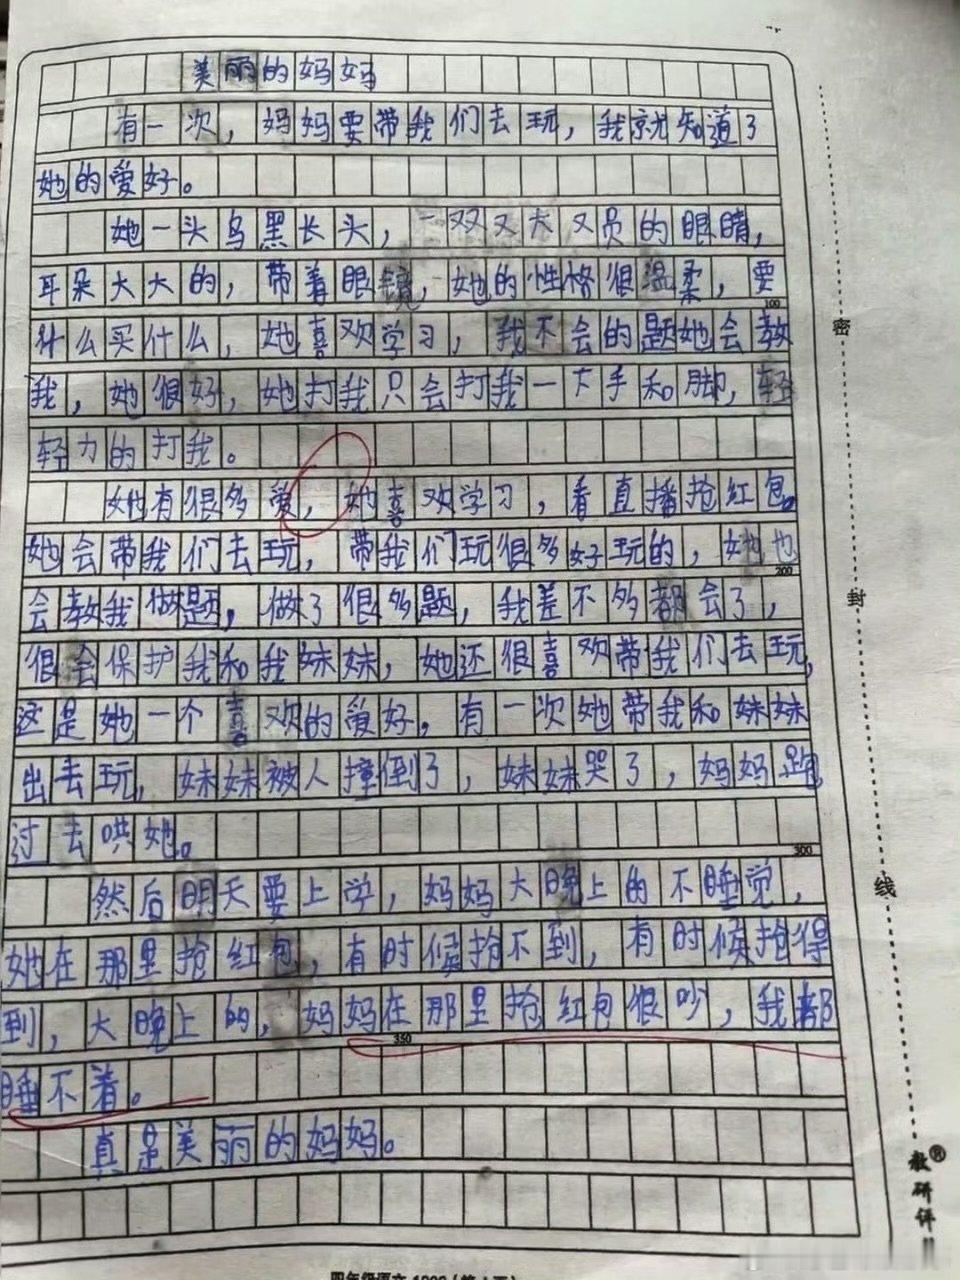 美丽的妈妈
有一次，妈妈要带我们去玩，我就知道了
她的爱好。
她一头乌黑长头，一双又大又员的眼睛，
耳朵大大的，带着眼镜，她的性格很温柔，要
什么买什么，她喜欢学习，我不会的题她会教
100
我，她很好，她打我只会打我一下手和脚，轻
轻力的打我。
她有很多爱，她喜欢学习，看直播抢红包。
她会带我们去玩，带我们玩很多好玩的，她也
200
会教我做题，做了很多题，我差不多都会了，
很会保护我和我妹妹，她还很喜欢带我们去玩，
这是她一个喜欢的爱好。有一次她带我和妹妹
出去玩，妹妹被人撞倒了，妹妹哭了，妈妈跑
过去哄她。
300
然后明天要上学，妈妈大晚上的不睡觉，
她在那里抢红包，有时候抢不到，有时候抢得
到，大晚上的，妈妈在那里抢红包很吵，我都
350
睡不着。
真是美丽的妈妈。
密
封
线
教研评